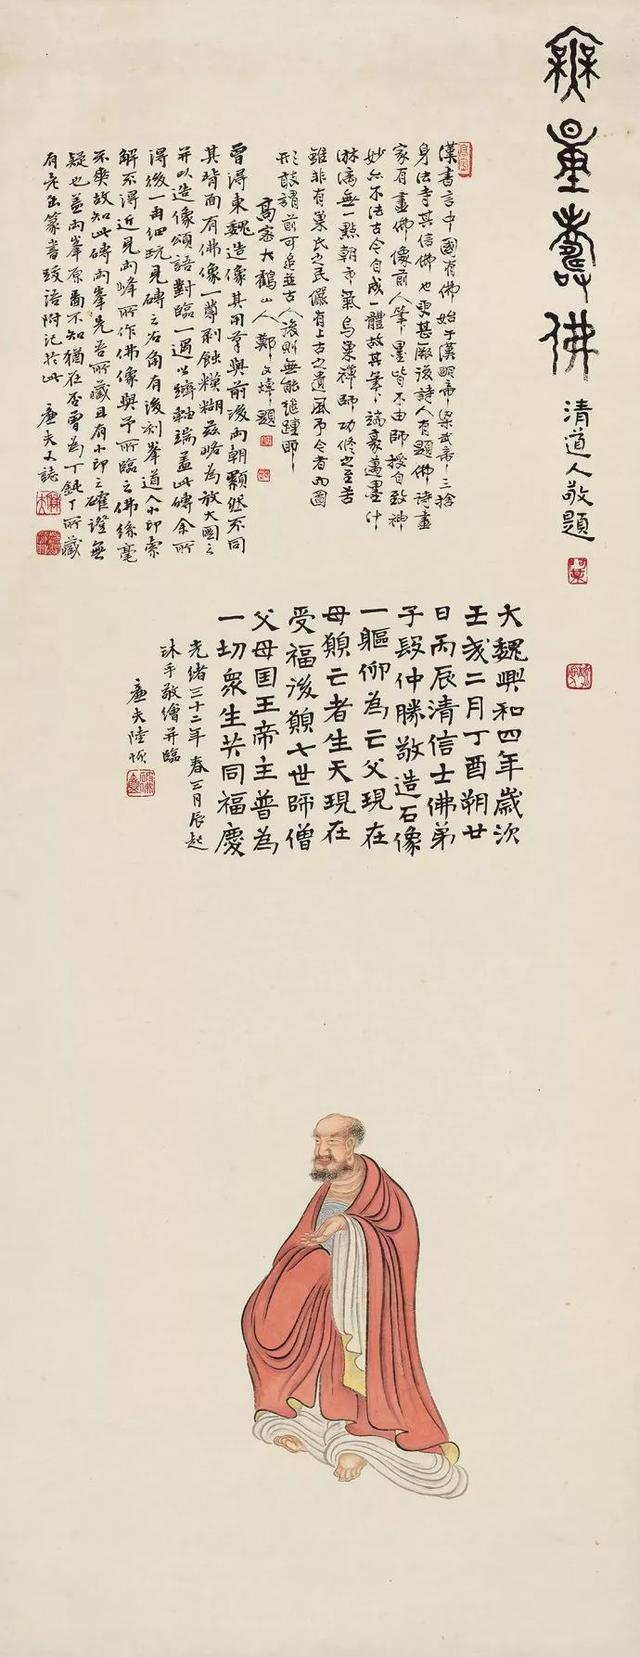 無量壽佛
清道人敬題
漢書言中國有佛始于漢明帝梁武帝三捨
身法寺其信佛也更甚厥後詩人有題佛詩畫
家有畫佛像前人筆墨皆不由師授自致神
妙
不法古今自成一體故其筆
端豪蓋墨汁
淋漓無一點朝市氣鳥巢禪師功修之至苦
雖非有巢氏之民儼有上古之遺風予令者
圖
形敢謂前可追並古人後則無能繼踵耶
高密大鶴山人鄭文焯題
曾得東魏造像其用筆與前後兩朝顯然不同
其背面有佛像一尊剥蝕糢糊茲略為放大圖之
并以造像頌語對臨一過以
軸端蓋此磚余所
得後一再細玩見磚之右角有後刻峯道人小印索
解不得近見兩峰所作佛像與予所臨之佛絲毫
不爽故知此磚兩峯先吾所藏且有小印之確證無
疑也蓋兩峯原
不知猶在否曾為丁鈍丁所藏
有老缶篆
跋語附記於此
廉夫又誌
大魏興和四年歲次
壬戌二月丁酉朔廿
日丙辰清信士佛弟
子段仲勝敬造石像
一軀仰為亡父現在
母願亡者生天現在
受福後願七世師僧
父母国王帝主普為
一切衆生共同福慶
光緒三十二年春三月辰起
沐手敬繪并臨
廉夫陸恢